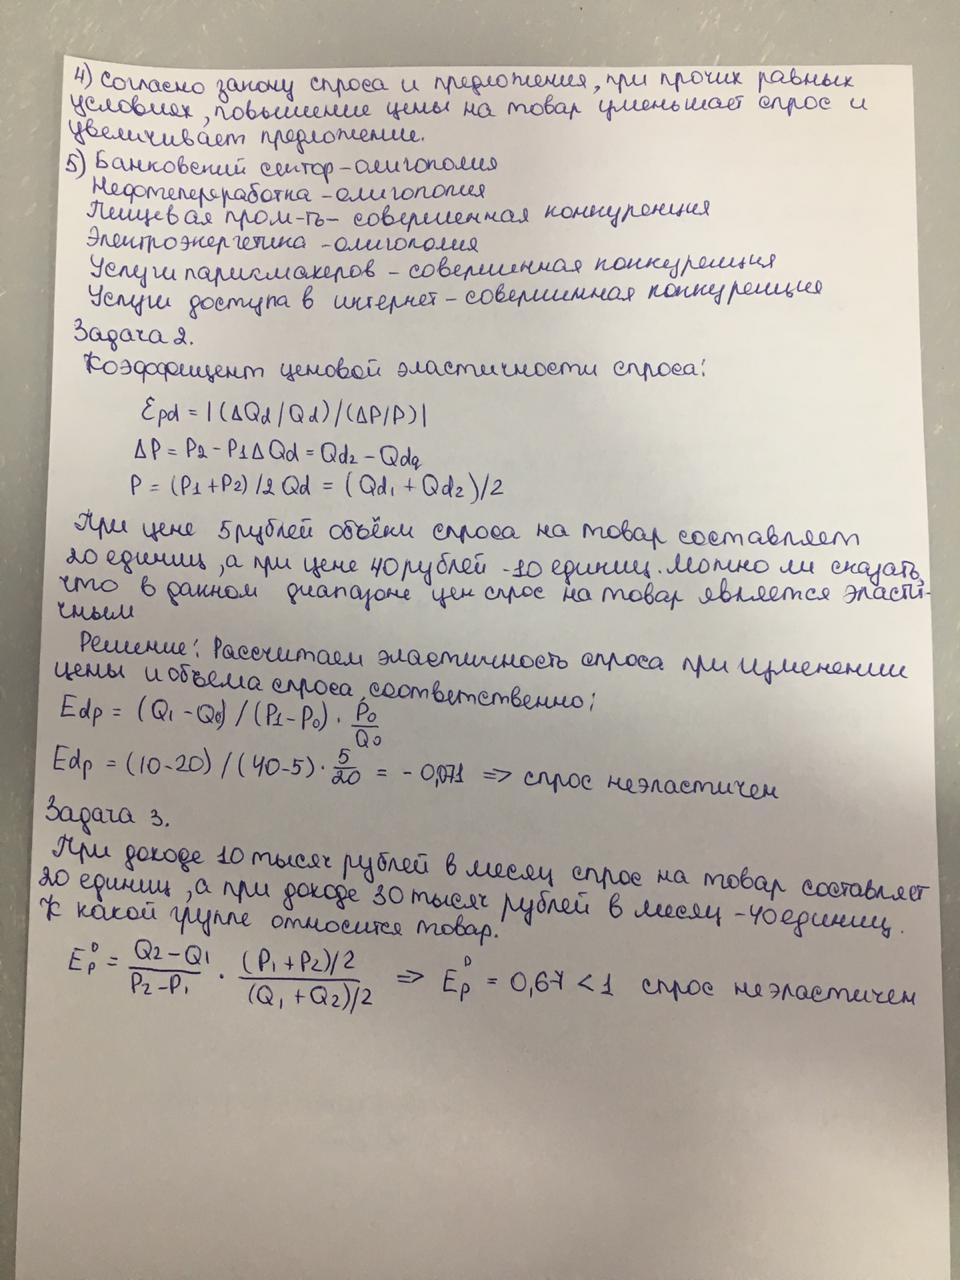 4) Согласно закону спроса и предложения, при прочих равных
условиях, повышение цены на товар уменьшает спрос и
увеличивает предложение.
5) Банковский сектор - олигополия
Нефтепереработка - олигополия
Пищевая пром-ть - совершенная конкуренция
Электроэнергетика - олигополия
Услуги парикмахеров - совершенная конкуренция
Услуги доступа в интернет - совершенная конкуренция
Задача 2.
Коэффициент ценовой эластичности спроса:
Epd = |(ΔQd/Qd)/(ΔP/P)|
ΔP = P2 - P1ΔQd = Qd2 - Qdq
P = (P1+P2)/2 Qd = (Qd1 + Qd2)/2
При цене 5 рублей объём спроса на товар составляет
20 единиц, а при цене 40 рублей - 10 единиц. Можно ли сказать,
что в данном диапазоне цен спрос на товар является эласти-
чным
Решение: Рассчитаем эластичность спроса при изменении
цены и объема спроса, соответственно:
Edp = (Q1 - Q0) / (P1 - P0) · P0/Q0
Edp = (10-20) / (40-5) · 5/20 = - 0,071 => спрос неэластичен
Задача 3.
При доходе 10 тысяч рублей в месяц спрос на товар составляет
20 единиц, а при доходе 30 тысяч рублей в месяц - 40 единиц.
К какой группе относится товар.
E_P^D = (Q2 - Q1)/(P2 - P1) · ((P1 + P2)/2)/((Q1 + Q2)/2) => E_P^D = 0,67 < 1 спрос неэластичен